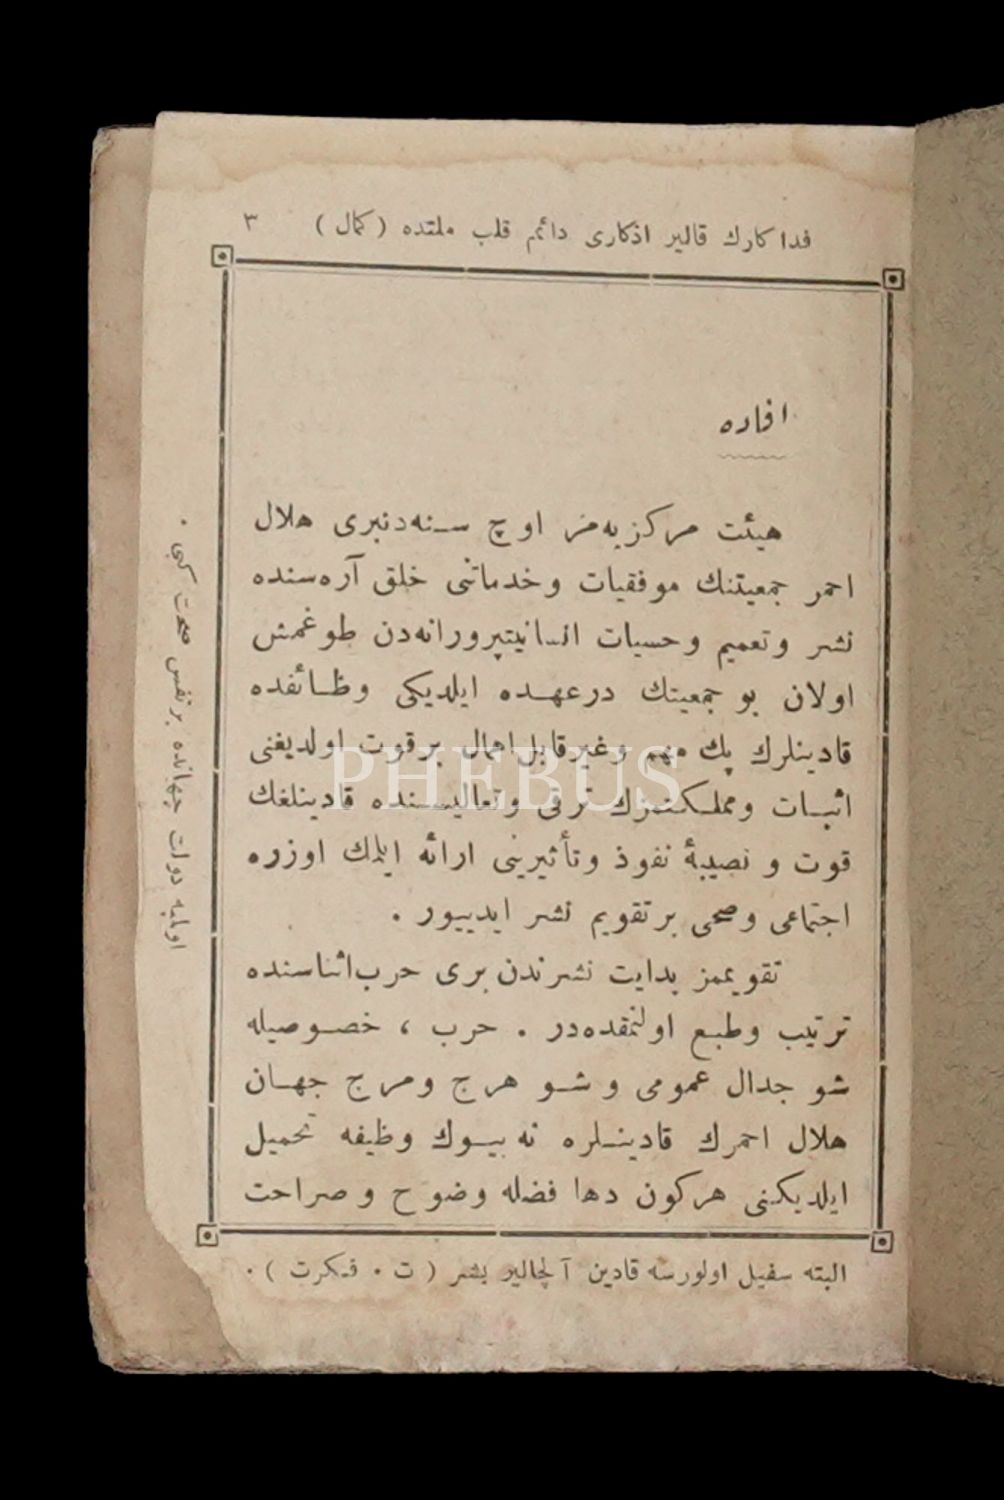 فداكارك قالير اذكارى دائم قلب ملتده (كمال) ٣
افاده
هيئت مركزيه‌مز اوچ سنه‌دنبرى هلال
احمر جمعيتنك موفقيات وخدماتنى خلق آره‌سنده
نشر وتعميم وحسيات انسانيتپرورانه‌دن طوغمش
اولان بو جمعيتك درعهده ايلديكى وظائفده
قادينلرك پك مهم وغيرقابل اهمال برقوت اولديغنى
اثبات ومملكتمزك ترقى وتعاليسنده قادينلغك
قوت و نصيبهٔ نفوذ وتأثيرينى ارائه ايلمك اوزره
اجتماعى وصحى برتقويم نشر ايدييور .
تقويممز بدايت نشرندن برى حرب اثناسنده
ترتيب وطبع اولنمقده‌در . حرب ، خصوصيله
شو جدال عمومى و شو هرج ومرج جهان
هلال احمرك قادينلره نه بيوك وظيفه تحميل
ايلديكنى هركون دها فضله وضوح و صراحت
البته سفيل اولورسه قادين آلچالير بشر (ت . فكرت) .
اولمايه دولت جهانده بر نفس صحت كبى .
PHEBUS